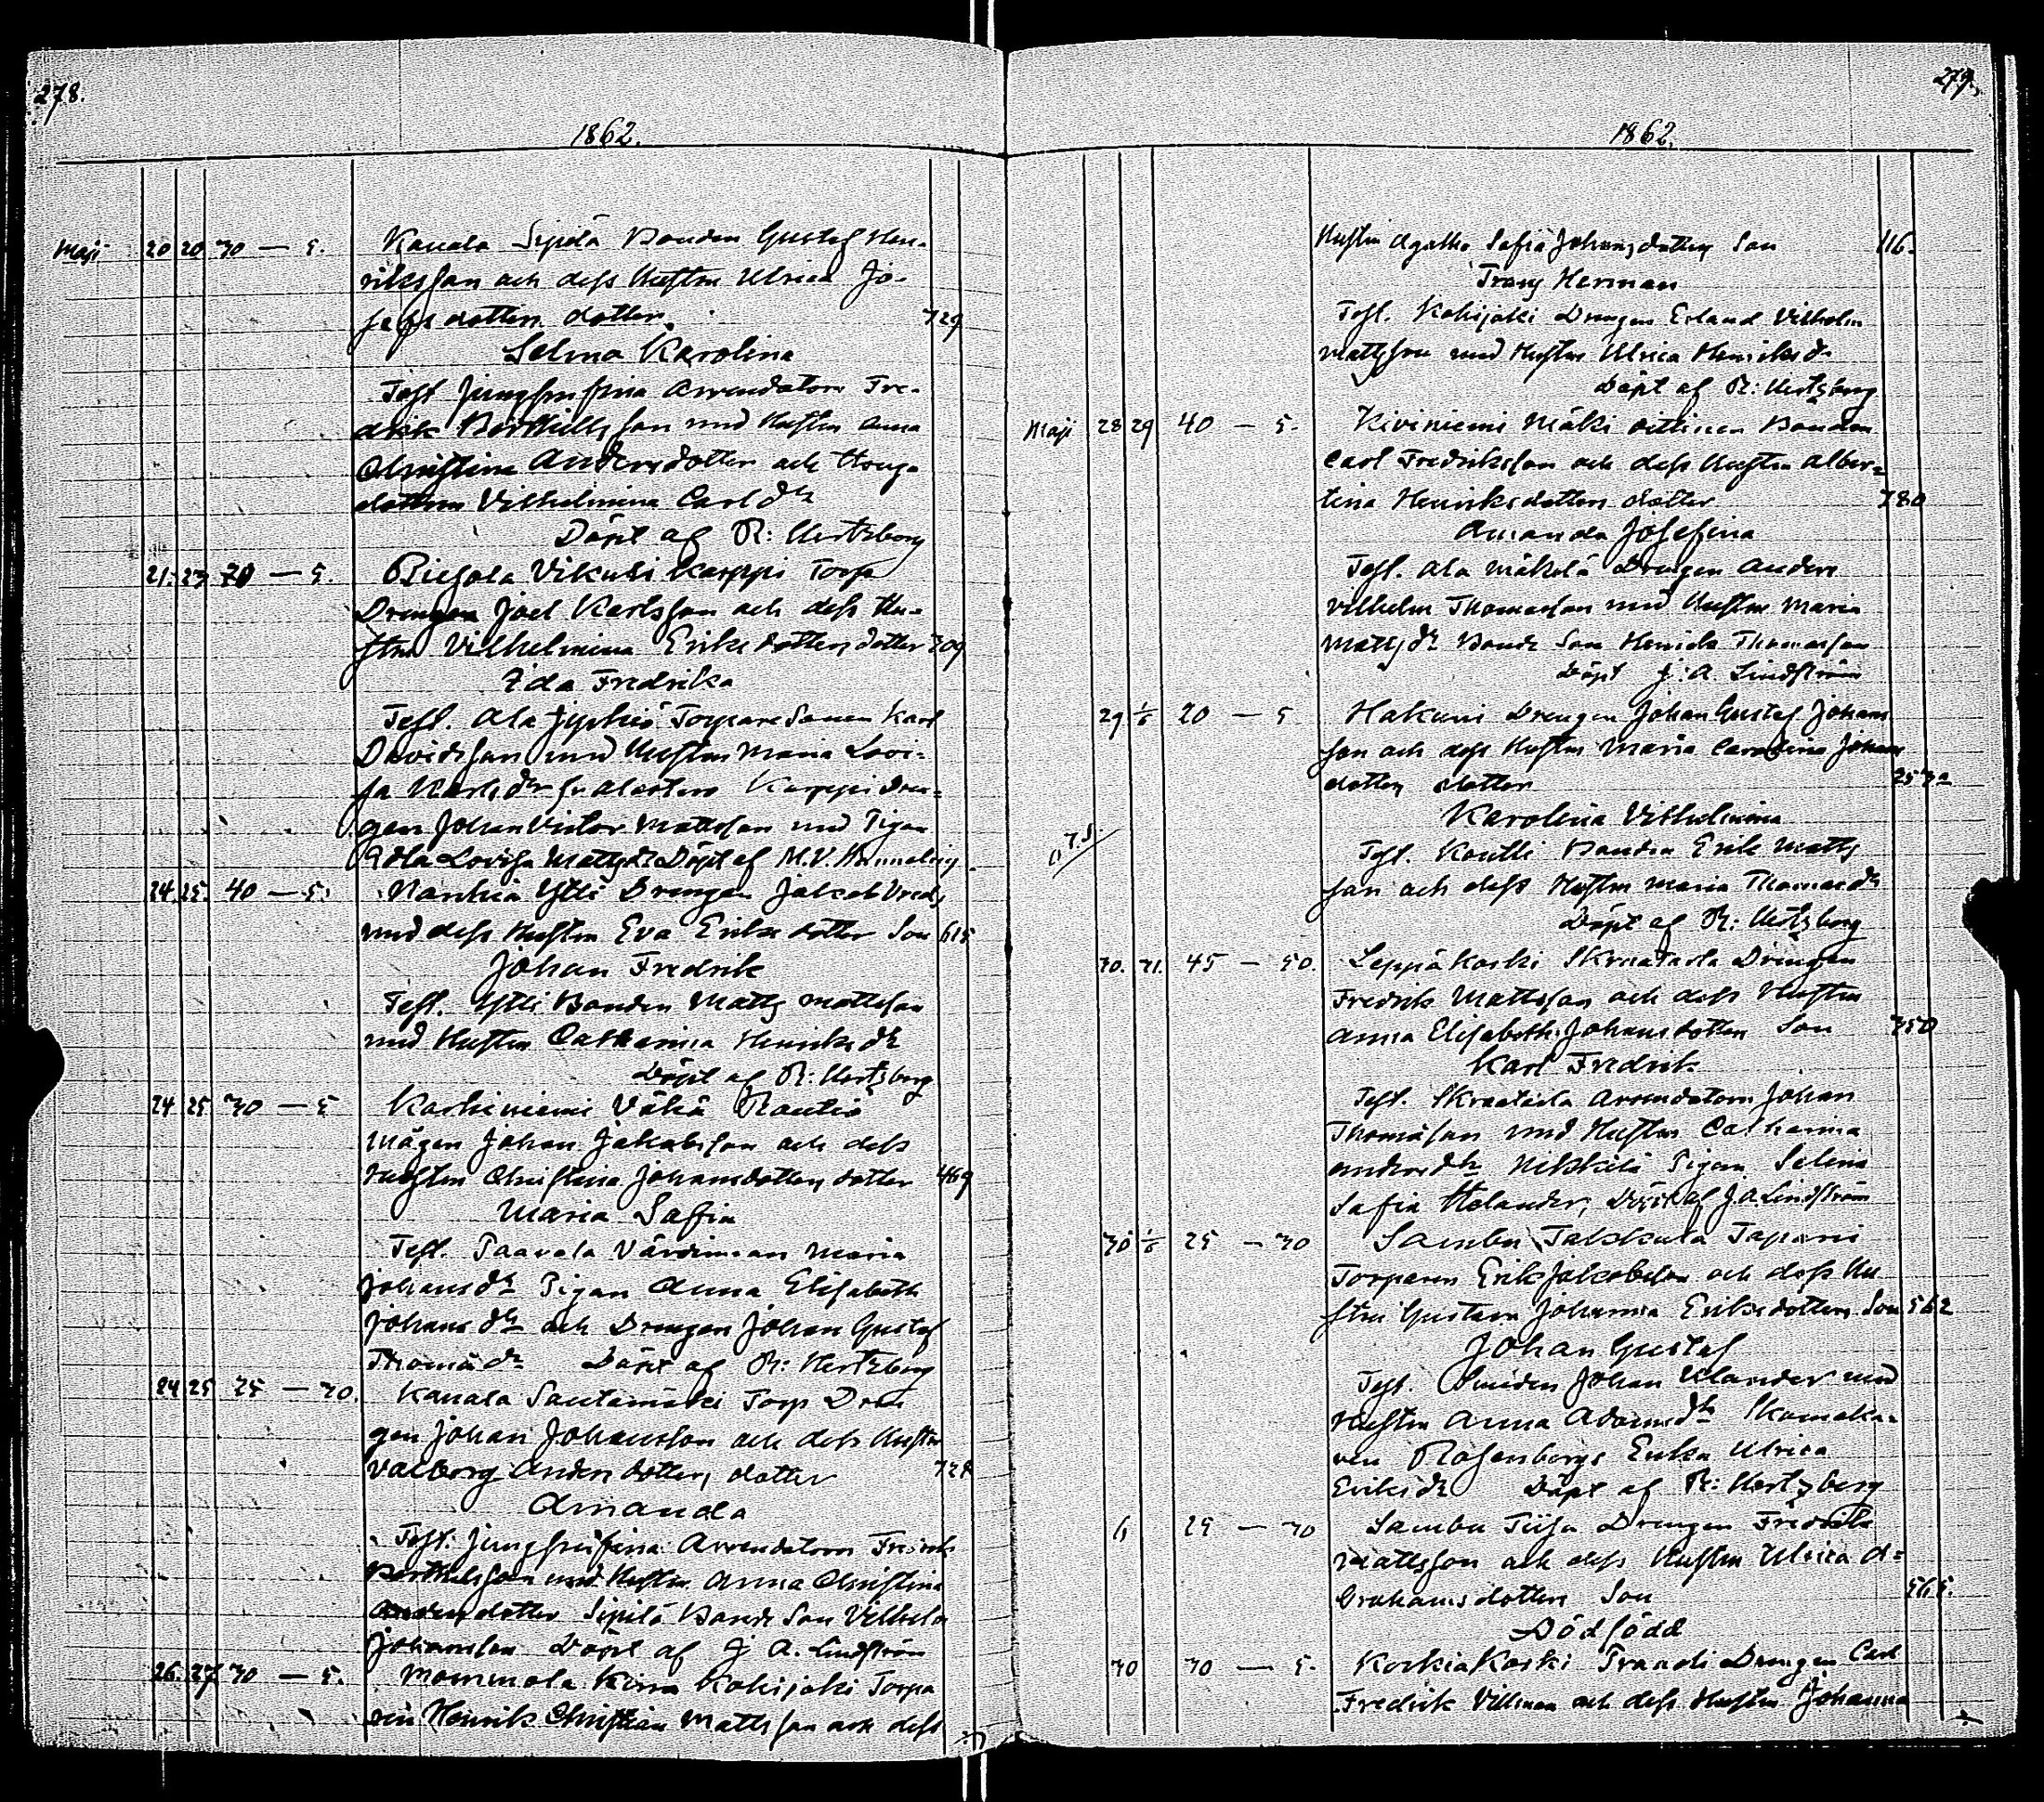 278.
1862.
Maji 20 20 30 — 5. Kauala Sipilä Bonden Gustaf Hen-
riksson och dess Hustru Ulrica Jo-
sefsdotters dotter 729
Selma Karolina
Test. Jungfrufina Arrendatorn Fre-
drik Berthilsson med Hustru Anna
Christina Andersdotter och Honga
dottern Vilhelmina Carl dr
Döpt af R: Hertzberg
21. 23 20 — 5. Piesala Vikusi Karppi Torp
Drengen Joel Karlsson och dess Hu-
stru Vilhelmina Eriksdotters dotter 309
Ida Fredrika
Test. Ala Jyskiö Torpare Sonen Karl
Davidsson med Hustru Maria Lovi-
sa Karls dr Karppi Dren-
gen Johan Victor Mattsson med Pigan
Lovisa Matts dr Döpt af M.V.
24. 25. 40 — 5. Ytli Drengen Jakob
med dess Hustru Eva Eriksdotter Son 615
Johan Fredrik
Test. Ytli Bonden Matts Mattsson
med Hustru Catharina Henriks dr
Döpt af R: Hertzberg
24 25 30 — 5 Karhiniemi Vähä Rautio
Mågen Johan Jakobsson och dess
Hustru Christina Johansdotters dotter 469
Maria Saffia
Test. Paavala Värdinnan Maria
Johans dr Pigan Anna Elisabeth
Johans dr och Drengen Johan Gustaf
Thomä dr Döpt af R: Hertzberg
24 25 25 — 30. Kauala Santamäki Torp Dren
gen Johan Johansson och dess Hustru
Valborg Andersdotters dotter 728
Amanda
Test. Jungfrufina Arrendatorn Fredrik
Berthelsson med Hustru Anna Christina
Andersdotter Sipilä Bonde Son Vilhelm
Johansson Döpt af J A. Lindström
26. 27. 30 — 5. Mommola Kohijoki Torpa
ren Henrik Christian Mattsson och dess
279.
1862.
Hustru Agatha Safia Johansdotters Son 116.
Frans Herman
Test. Kohijoki Drengen Erland Vilhelm
Mattsson med Hustru Ulrica Henriks dr
Döpt af R: Hertzberg
Maji 28 29 40 — 5. Kiviniemi Mäki Bonden
Carl Fredriksson och dess Hustru Alber-
tina Henriksdotters dotter 780
Amanda Josefina
Test. Ala Mäkelä Drengen Anders
Vilhelm Thomasson med Hustru Maria
Matts dr Bonde Son Henrik Thomasson
Döpt J. A. Lindström
29 1/6 20 — 5 Hakuni Drengen Johan Gustaf Johans
son och dess Hustru Maria Carolina Johans
dotters dotter
Karolina Vilhelmina
Test. Koulli Bonden Erik Matts
son och dess Hustru Maria Thomas dr
Döpt af R: Hertzberg
30. 31. 45 — 50. Leppäkoski Skraatarla Drengen
Fredrik Mattsson och dess Hustru
Anna Elisabeth Johansdotters Son 350
Karl Fredrik
Test. Arrendatorn Johan
Thomasson med Hustru Catharina
Anders dr Nikkilä Pigan Selina
Safia Helander, Döpt af J.A. Lindström
30 1/6 25 — 30 Sambu Jakkula Tapani
Torparen Erik Jakobsson och dess Hu
stru Gustava Johanna Eriksdotters Son 562
Johan Gustaf
Test. Smeden Johan Ulander med
Hustru Anna Adams dr Skomaka-
ren Rosenborgs Enka Ulrica
Eriks dr Döpt af R: Hertzberg
6 25 — 30 Sambu Tiisa Drengen Fredrik
Mattsson och dess Hustru Ulrica A-
brahamsdotters Son 565.
Dödfödd
30 30 — 5. Koskiakoski Prandi Drengen Carl
Fredrik Villman och dess Hustru Johanna